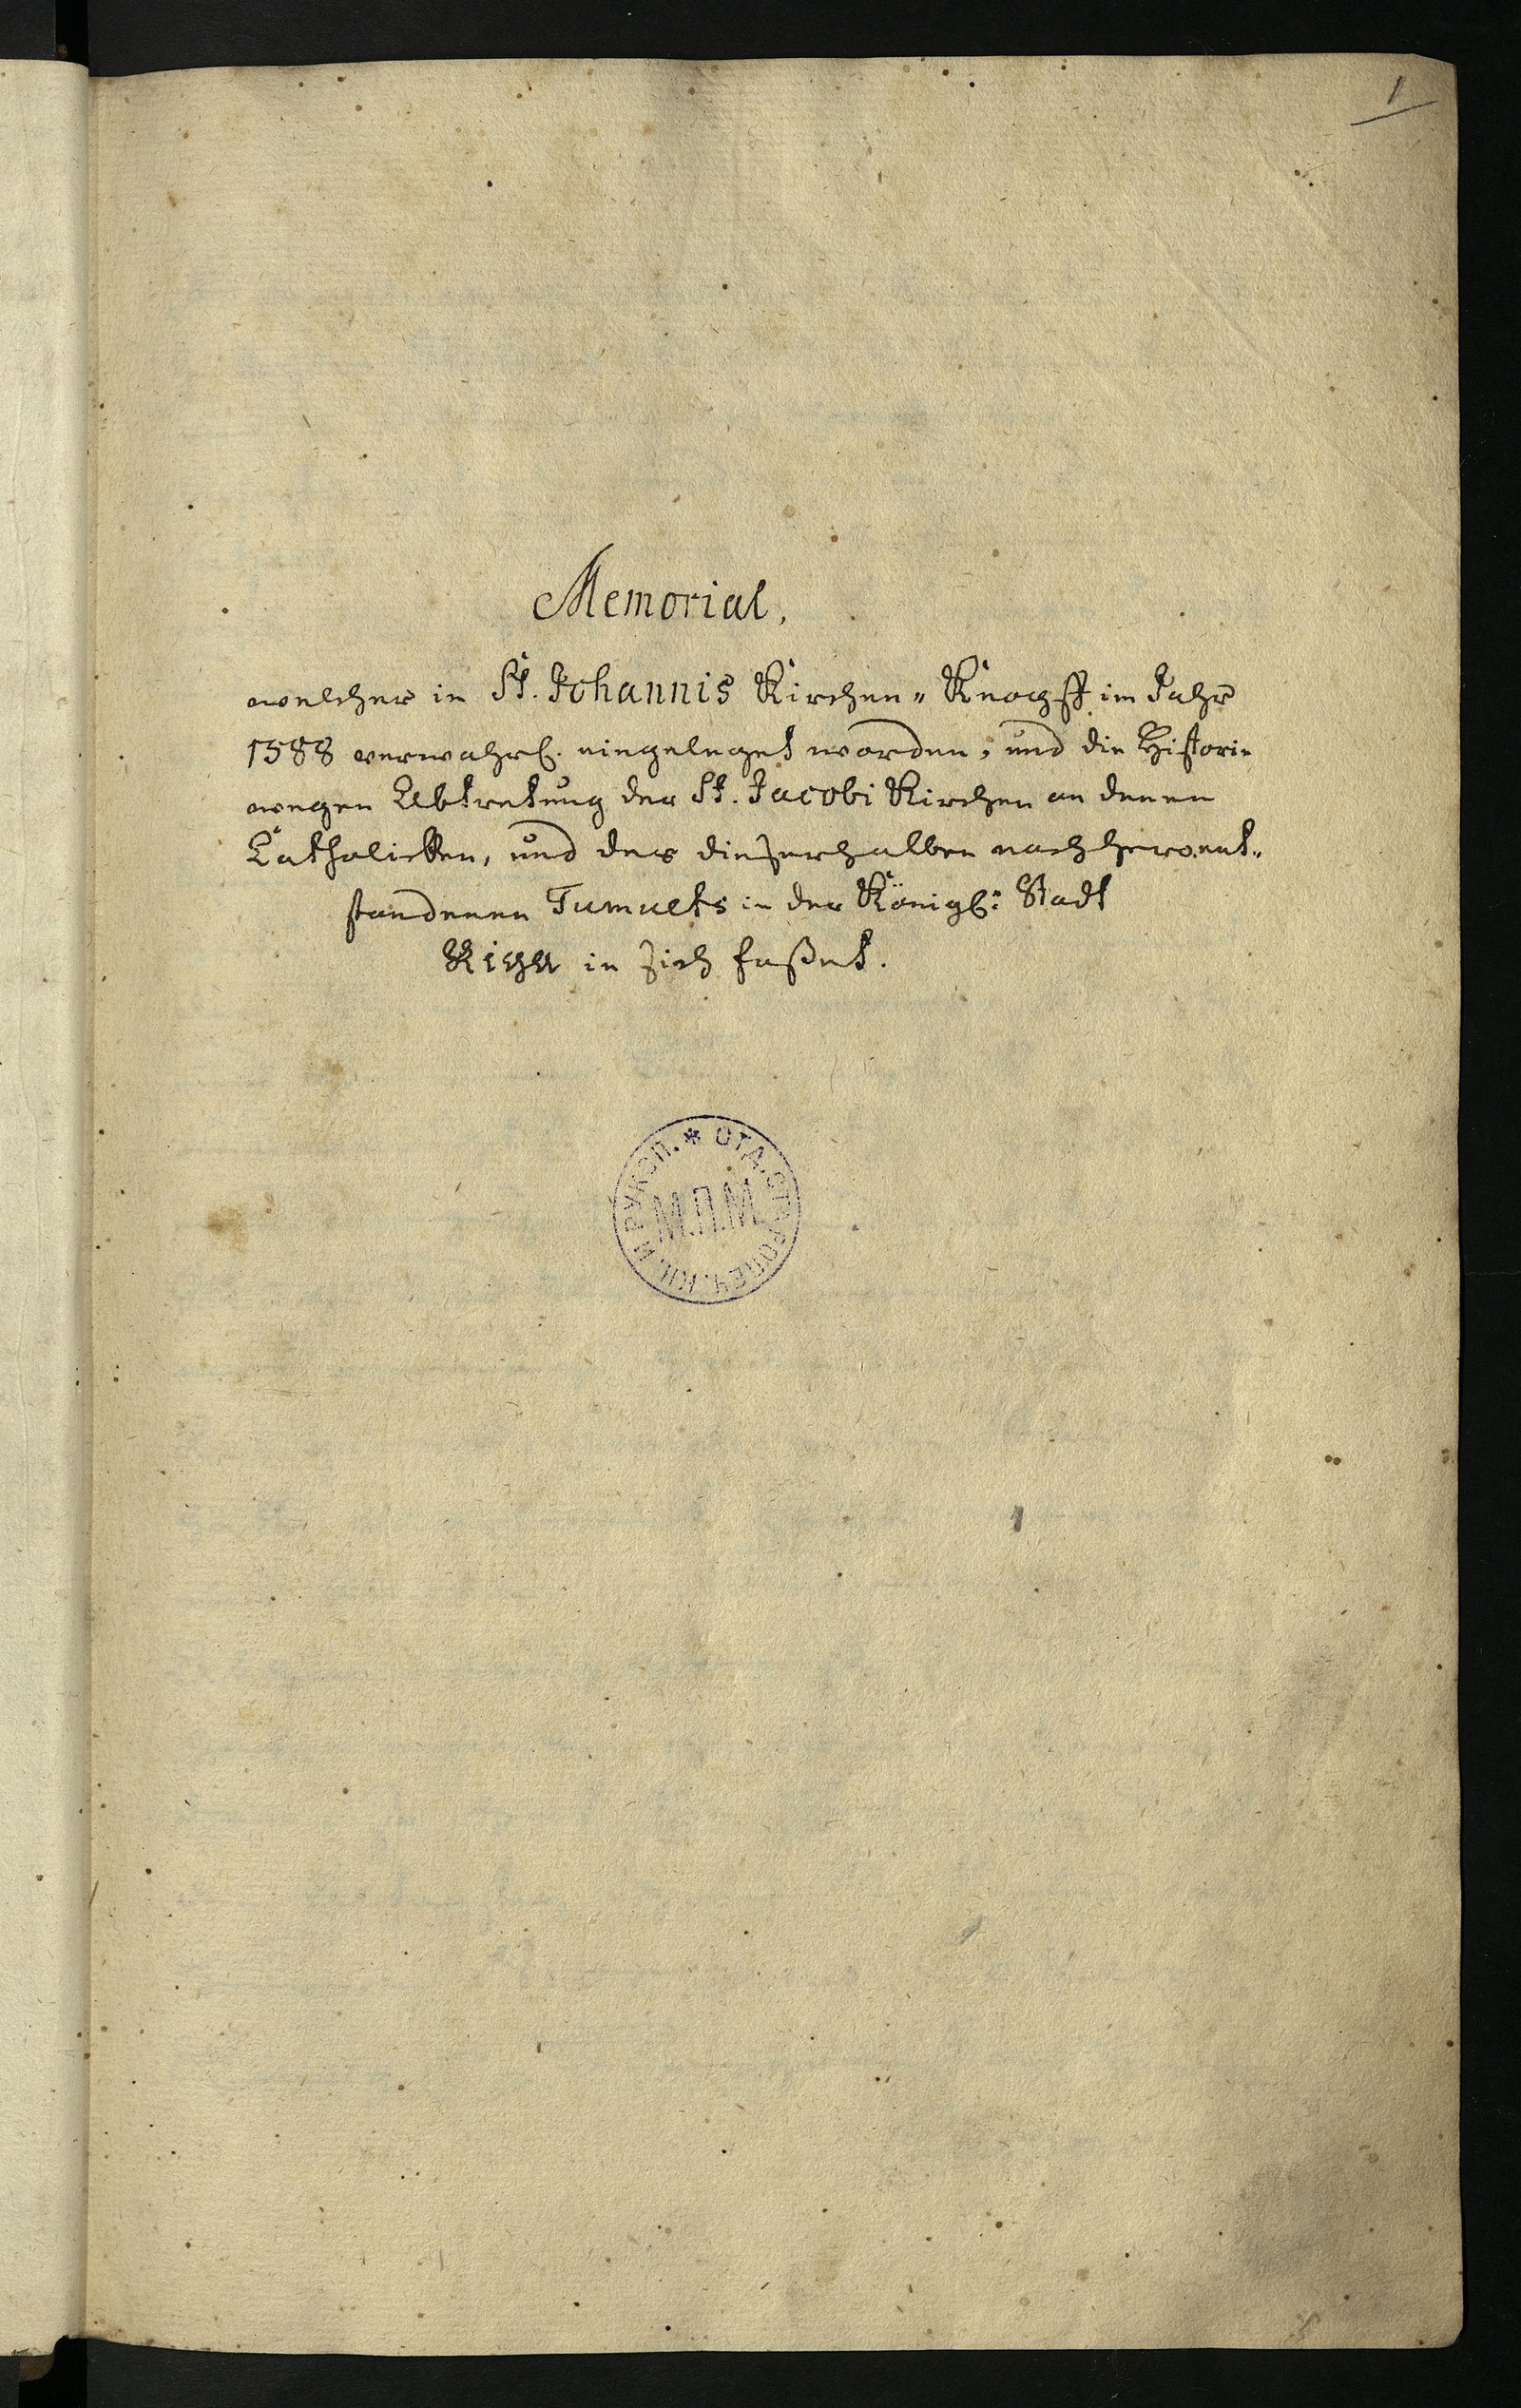 1
Memorial,
welches in St. Johannis Kirchen-Knopff im Jahr
1588 verwahrl. eingeleget worden, und die Historie
wegen Abtretung der St. Jacobi Kirchen an denen
Catholicken, und des dieserhalben nachhero ent-
standenen Tumults in der Königl: Stadt
Riga in sich faßet.
* ОТД. СТАРОПЕЧ. КН. И РУКОП.
М.П.М.
1